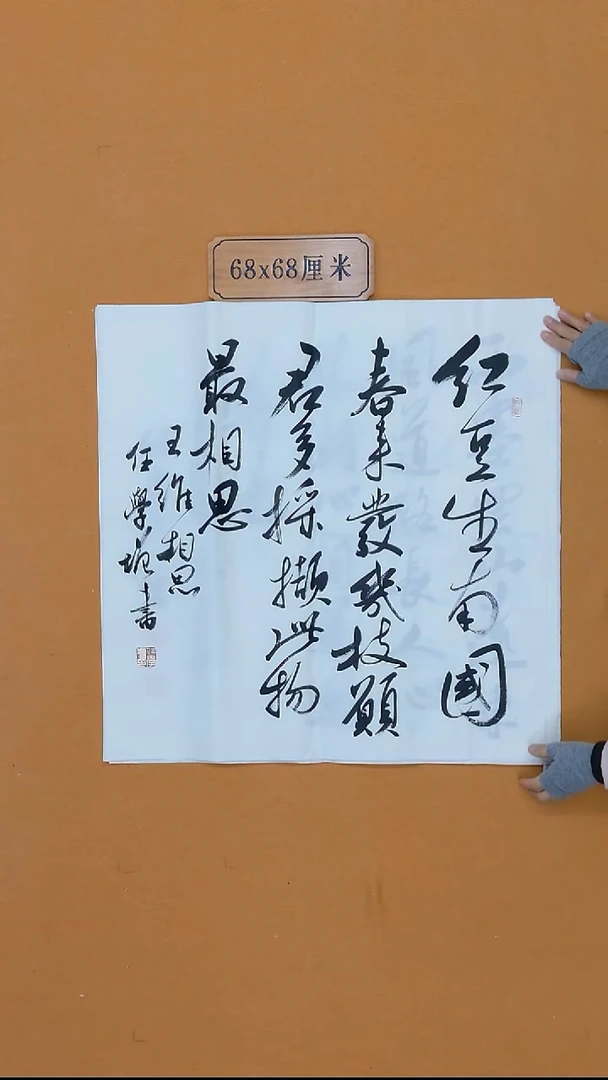 68x68厘米
红豆生南國
春来發幾枝願
君多採擷此物
最相思
王維相思
任學現書